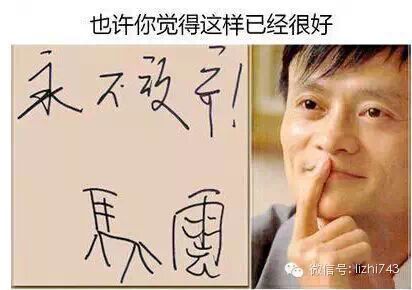 也许你觉得这样已经很好
永不放弃!
馬雲
微信号: lizhi743